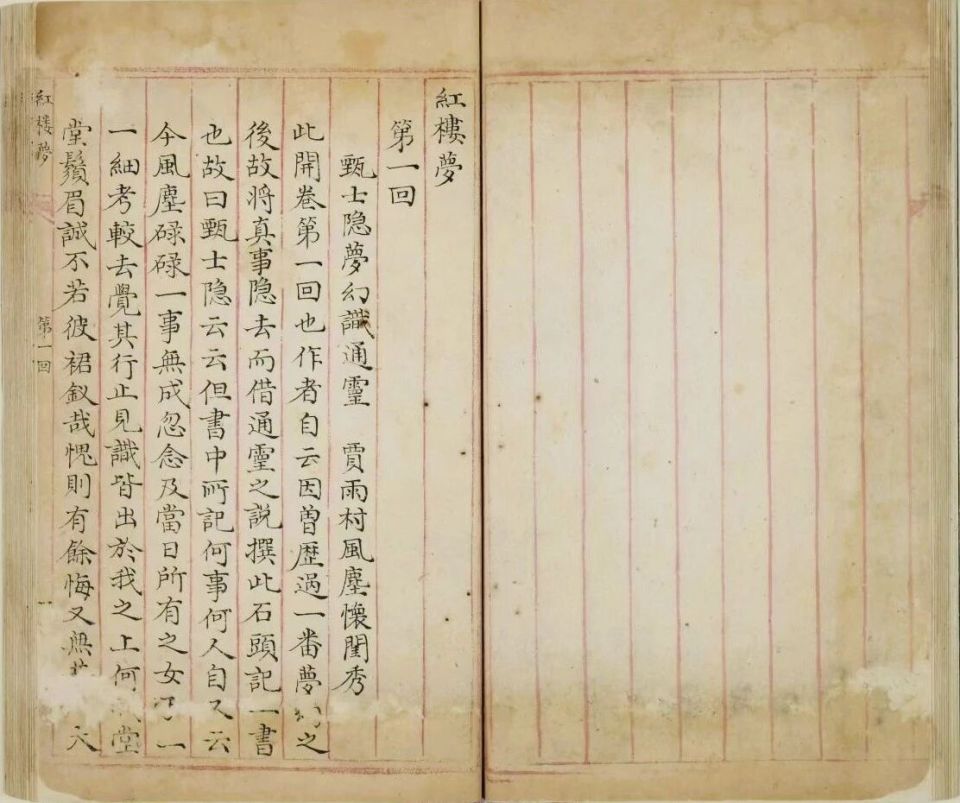 紅樓夢
第一回
甄士隐夢幻識通靈　賈雨村風塵懷閨秀
此開卷第一回也作者自云因曾歷過一番夢幻之
後故将真事隐去而借通靈之説撰此石頭記一書
也故曰甄士隐云云但書中所記何事何人自又云
今風塵碌碌一事無成忽念及當日所有之女子一
一細考較去覺其行止見識皆出於我之上何堂
堂鬚眉誠不若彼裙釵哉愧則有餘悔又無大
紅樓夢
第一回